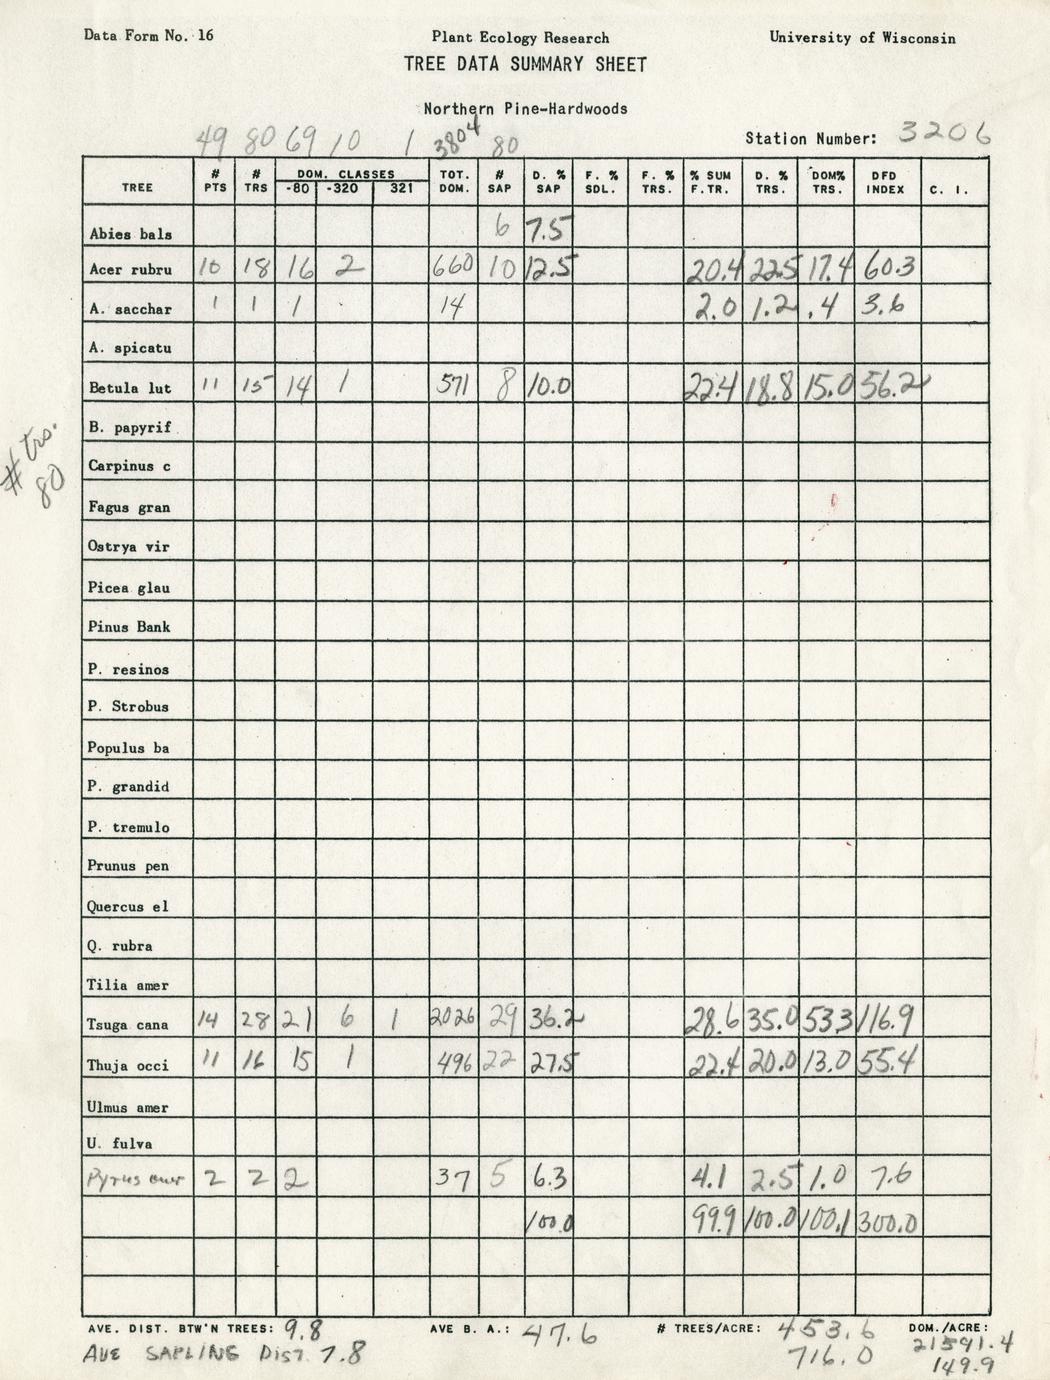 Data Form No. 16 Plant Ecology Research University of Wisconsin
TREE DATA SUMMARY SHEET
Northern Pine-Hardwoods
Station Number: 3206
49 80 69 10 1 3804 80
TREE # PTS # TRS DOM. CLASSES -80 -320 321 TOT. DOM. # SAP D. % SAP F. % SDL. F. % TRS. % SUM F.TR. D. % TRS. DOM% TRS. DFD INDEX C. I.
Abies bals 6 7.5
Acer rubru 10 18 16 2 660 10 12.5 20.4 22.5 17.4 60.3
A. sacchar 1 1 1 14 2.0 1.2 .4 3.6
A. spicatu
Betula lut 11 15 14 1 571 8 10.0 22.4 18.8 15.0 56.2
B. papyrif
# trs. 80
Carpinus c
Fagus gran
Ostrya vir
Picea glau
Pinus Bank
P. resinos
P. Strobus
Populus ba
P. grandid
P. tremulo
Prunus pen
Quercus el
Q. rubra
Tilia amer
Tsuga cana 14 28 21 6 1 2026 29 36.2 28.6 35.0 53.3 116.9
Thuja occi 11 16 15 1 496 22 27.5 22.4 20.0 13.0 55.4
Ulmus amer
U. fulva
Pyrus amer 2 2 2 37 5 6.3 4.1 2.5 1.0 7.6
100.0 99.9 100.0 100.1 300.0
AVE. DIST. BTW'N TREES: 9.8 AVE B. A.: 47.6 # TREES/ACRE: 453.6 DOM./ACRE: 21591.4
AVE SAPLING DIST. 7.8 716.0 149.9